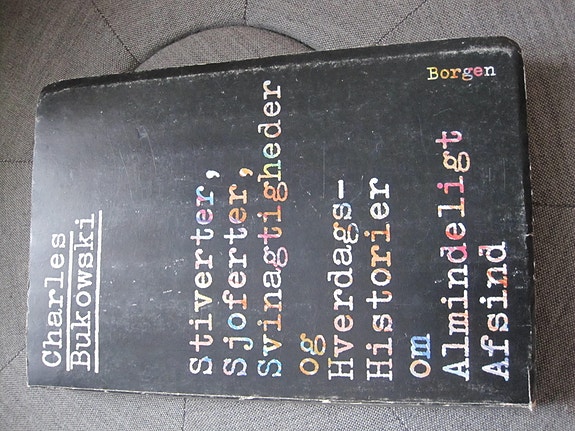 Charles
Bukowski
Stiverter,
Sjoferter,
Svinagtigheder
og
Hverdags-
Historier
om
Almindeligt
Afsind
Borgen